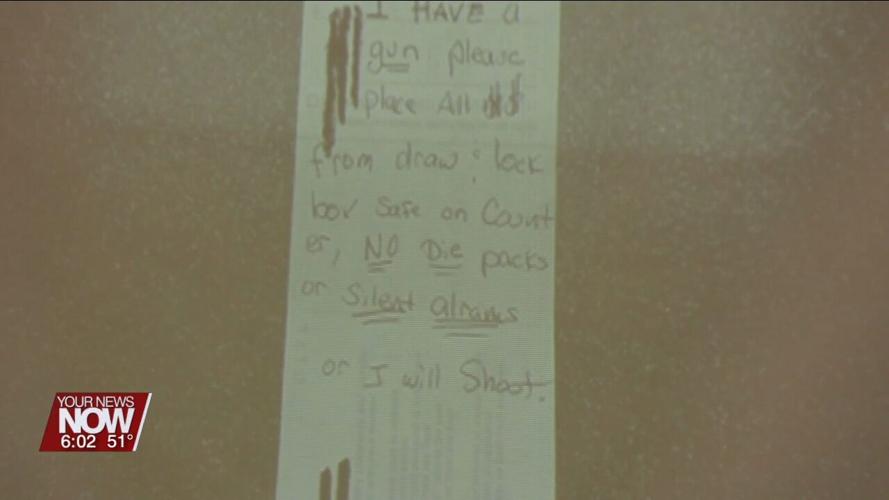 I HAVE a
gun please
place All $$
from draw & lock
box safe on Count
er, NO Die packs
or Silent alrams
or I will Shoot.
YOUR NEWS
NOW
6:02 51°